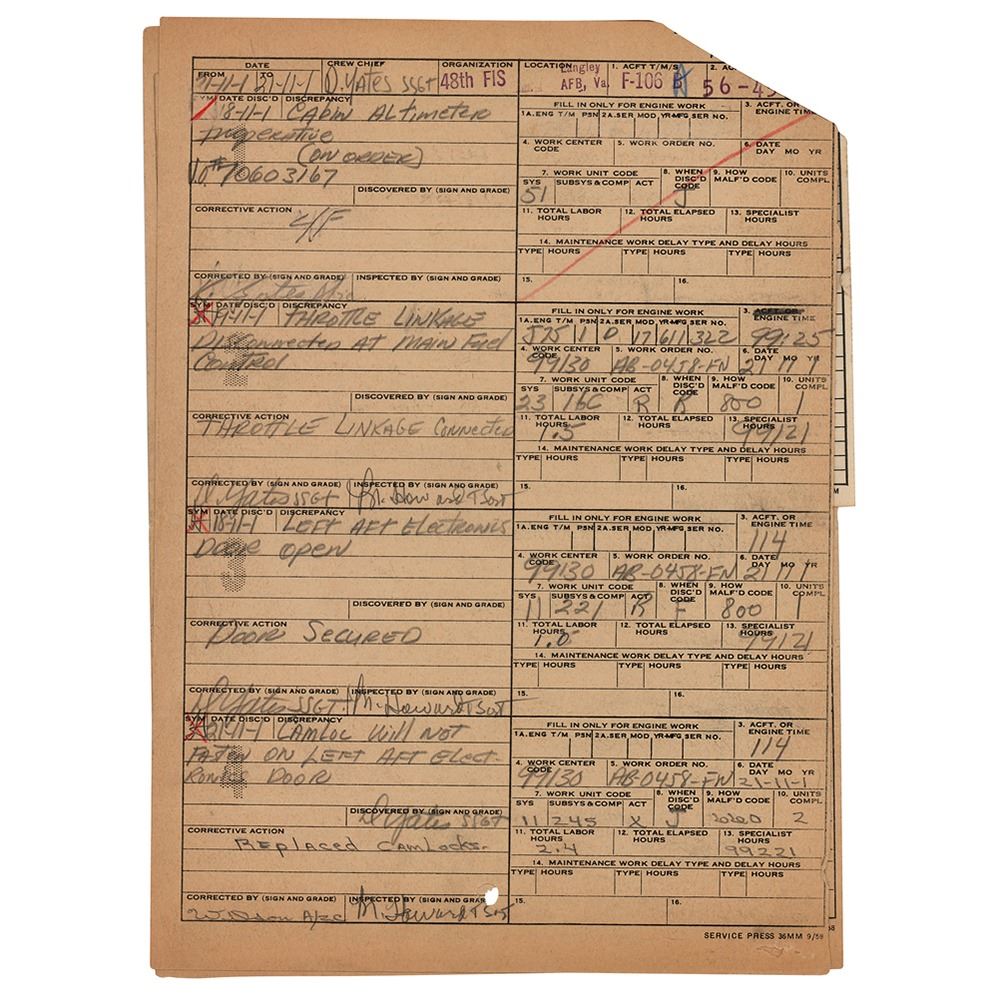 DATE CREW CHIEF ORGANIZATION LOCATION 1. ACFT T/M/S 2. AC
FROM TO
21-11-1 D. YATES SSGT 48th FIS Langley AFB, Va. F-106 56-45
SYM DATE DISC'D DISCREPANCY
18-11-1 CABIN ALTIMETER
INOPERATIVE
(ON ORDER)
70603167
DISCOVERED BY (SIGN AND GRADE)
CORRECTIVE ACTION
C/F
CORRECTED BY (SIGN AND GRADE) INSPECTED BY (SIGN AND GRADE)
FILL IN ONLY FOR ENGINE WORK 3. ACFT. OR
1A. ENG T/M PSN 2A. SER MOD YR-MFG SER NO. ENGINE TIM
4. WORK CENTER CODE 5. WORK ORDER NO. 6. DATE
DAY MO YR
7. WORK UNIT CODE 8. WHEN DISC'D CODE 9. HOW MALF'D CODE 10. UNITS COMPL.
SYS SUBSYS & COMP ACT
51 J
11. TOTAL LABOR HOURS 12. TOTAL ELAPSED HOURS 13. SPECIALIST HOURS
14. MAINTENANCE WORK DELAY TYPE AND DELAY HOURS
TYPE HOURS TYPE HOURS TYPE HOURS
15. 16.
SYM DATE DISC'D DISCREPANCY
THROTTLE LINKAGE
DISCONNECTED AT MAIN FUEL
CONTROL
DISCOVERED BY (SIGN AND GRADE)
CORRECTIVE ACTION
THROTTLE LINKAGE CONNECTED
CORRECTED BY (SIGN AND GRADE) INSPECTED BY (SIGN AND GRADE)
D. Yates SSGT M. Howard TSGT
FILL IN ONLY FOR ENGINE WORK 3. ACFT. OR
1A. ENG T/M PSN 2A. SER MOD YR-MFG SER NO. ENGINE TIME
J75 1 D 17 611 322 99:25
4. WORK CENTER CODE 5. WORK ORDER NO. 6. DATE
DAY MO YR
99130 AB-0458-FN 21 11 1
7. WORK UNIT CODE 8. WHEN DISC'D CODE 9. HOW MALF'D CODE 10. UNITS COMPL.
SYS SUBSYS & COMP ACT
23 16C R R 800 1
11. TOTAL LABOR HOURS 12. TOTAL ELAPSED HOURS 13. SPECIALIST HOURS
1.5 99121
14. MAINTENANCE WORK DELAY TYPE AND DELAY HOURS
TYPE HOURS TYPE HOURS TYPE HOURS
15. 16.
SYM DATE DISC'D DISCREPANCY
18-11-1 LEFT AFT ELECTRONIS
DOOR OPEN
DISCOVERED BY (SIGN AND GRADE)
CORRECTIVE ACTION
DOOR SECURED
CORRECTED BY (SIGN AND GRADE) INSPECTED BY (SIGN AND GRADE)
D. Yates SSGT. M. Howard TSGT
FILL IN ONLY FOR ENGINE WORK 3. ACFT. OR
1A. ENG T/M PSN 2A. SER MOD YR-MFG SER NO. ENGINE TIME
114
4. WORK CENTER CODE 5. WORK ORDER NO. 6. DATE
DAY MO YR
99130 AB-0458-FN 21 11 1
7. WORK UNIT CODE 8. WHEN DISC'D CODE 9. HOW MALF'D CODE 10. UNITS COMPL.
SYS SUBSYS & COMP ACT
11 221 R F 800 1
11. TOTAL LABOR HOURS 12. TOTAL ELAPSED HOURS 13. SPECIALIST HOURS
1.0 99121
14. MAINTENANCE WORK DELAY TYPE AND DELAY HOURS
TYPE HOURS TYPE HOURS TYPE HOURS
15. 16.
SYM DATE DISC'D DISCREPANCY
21-11-1 CAMLOC WILL NOT
FASTEN ON LEFT AFT ELECT-
RONIS DOOR
DISCOVERED BY (SIGN AND GRADE)
D. Yates SSGT
CORRECTIVE ACTION
Replaced CamLocks.
CORRECTED BY (SIGN AND GRADE) INSPECTED BY (SIGN AND GRAD
Wilson A/2C M. Howard TSGT
FILL IN ONLY FOR ENGINE WORK 3. ACFT. OR
1A. ENG T/M PSN 2A. SER MOD YR-MFG SER NO. ENGINE TIME
114
4. WORK CENTER CODE 5. WORK ORDER NO. 6. DATE
DAY MO YR
99130 AB-0458-FN 21-11-1
7. WORK UNIT CODE 8. WHEN DISC'D CODE 9. HOW MALF'D CODE 10. UNITS COMPL.
SYS SUBSYS & COMP ACT
11 245 X J 2
11. TOTAL LABOR HOURS 12. TOTAL ELAPSED HOURS 13. SPECIALIST HOURS
2.4 99221
14. MAINTENANCE WORK DELAY TYPE AND DELAY HOURS
TYPE HOURS TYPE HOURS TYPE HOURS
15. 16.
SERVICE PRESS 36MM 9/58